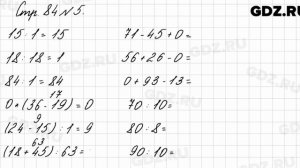 Стр. 84 №5.
GDZ.RU
15 · 1 = 15
71 - 45 + 0 =
18 : 18 = 1
56 + 26 - 0 =
84 : 1 = 84
0 + 93 - 13 =
17
0 · (36 - 19) = 0
70 : 10 =
9
(24 - 15) : 1 = 9
80 : 8 =
63
(18 + 45) : 63 =
90 : 10 =
GDZ.RU